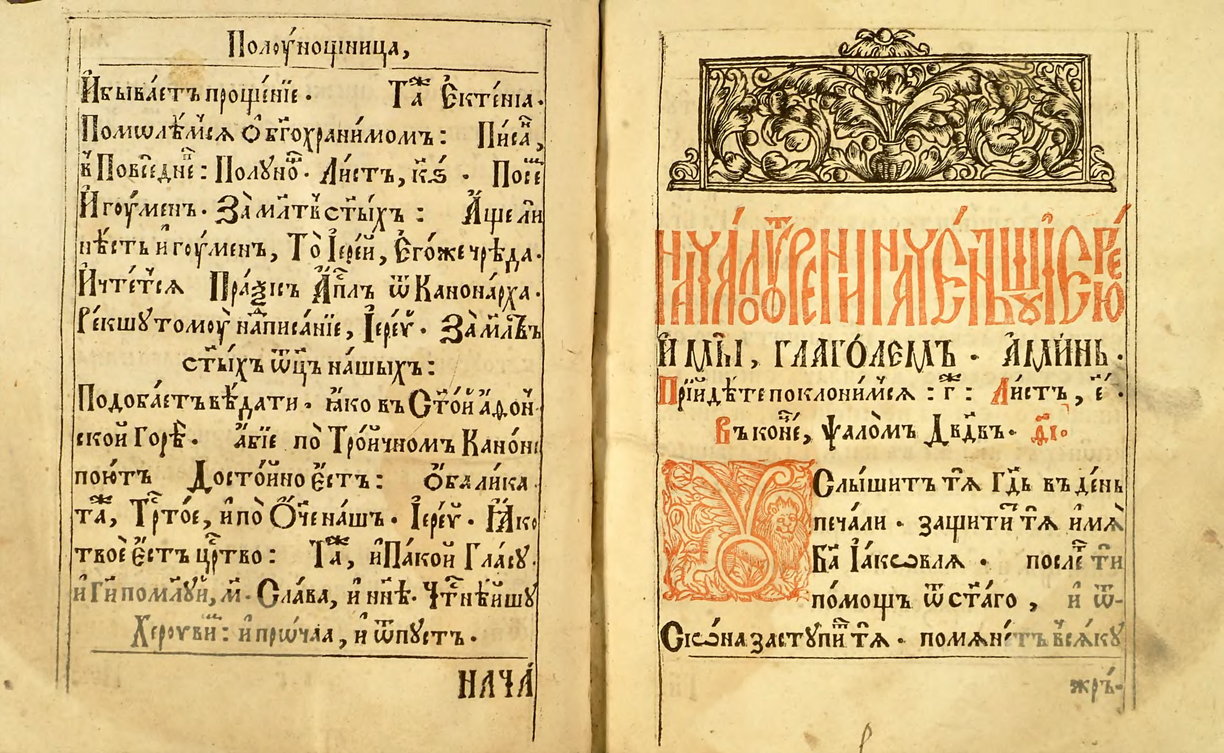 Полоу́нощница,
И҆ быва́етъ проще́нїе . Та́ж Е҆ктенїа̀ .
Помѡлѣ́мсѧ ѻ҆ бг҃охранимомъ : Пи́сана,
в̾ Повсѐдне : Полуно́ . Ли́стъ, к҃ѕ . Посе
И҆гоу́менъ . За̀ мл҃твъ ст҃ы́хъ : А҆́ще ли
нѣ́сть и҆гоу́мен, То̀ І҆ере́й, Е҆го́же чреда̀ .
И҆ чте́тсѧ Пра́ѯисъ А҆пⷭ҇лъ ѿ Канона́рха .
Ре́кшу томоу̀ написа́нїе, І҆ере́ѵ . За̀ мл҃твъ
ст҃ы́хъ ѻ҆ц҃ъ на́шыхъ :
Подоба́етъ вѣ́дати . ꙗ҆́ко въ Ст҃о́й а҆ѳон-
ской Горѣ̀ . а҆́бїе по̀ Тро́йчномъ Кано́нѣ
пою́тъ Досто́йно е҆́сть : ѻ҆балика .
та́ж, Трⷭ҇то́е, и҆ по̀ Ѻ҆́че на́шъ . І҆ере́ѵ . Ꙗ҆́ко
твоѐ е҆́сть црⷭ҇тво : Та́ж, и҆ Па́кой Гла́су .
и҆ Гдⷭ҇и поми́луй, м҃ . Сла́ва, и҆ нн҃ѣ . Чтⷭ҇нѣ́йшу
Хероуви́м : и҆ прѡ́чаа, и҆ ѿпу́стъ .
НАЧА́
НАЧА́ЛО У́ТРЕНИ ГЛАГО́ЛЕНЬ БЫ́ВШУ І҆ЕРЕ́Ю
И҆ МЫ̀, ГЛАГО́ЛЕМЪ . А҆МИ́НЬ .
Прїйдѣ́те поклони́мсѧ : г҃ : Ли́стъ, є҃ .
Въ коне́, ѱало́мъ Дв҃двъ . ѳ҃і .
Оу҆слы́шитъ тѧ̀ Гдⷭ҇ь въ де́нь
печа́ли . защити́т тѧ̀ и҆́мѧ
Бг҃а І҆а́кѡвлѧ . послет ти
по́мощъ ѿ ст҃а́го , и҆ ѿ-
Сиѡ́на засту́пит тѧ̀ . помѧне́тъ всѧ́ку
жръ́-